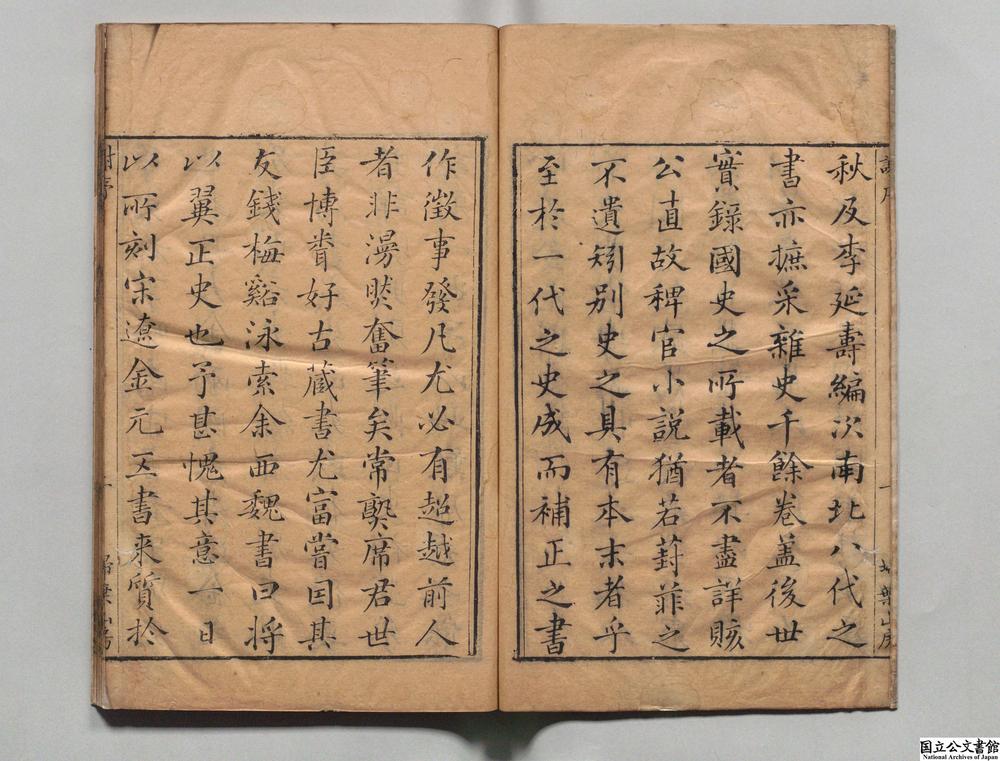 秋及李延壽編次南北八代之
書亦摭采雜史千餘卷盖後世
實錄國史之所載者不盡詳賅
公直故稗官小說猶若葑菲之
不遺矧別史之具有本末者乎
至於一代之史成而補正之書
作徵事發凡尤必有超越前人
者非漫然奮筆矣常熟席君世
臣博耆好古藏書尤富嘗因其
友錢梅谿泳索余西魏書曰將
以翼正史也予甚愧其意一日
以所刻宋遼金元五書来質於
一
葉山房
謝序
一
掃葉山房
国立公文書館
National Archives of Japan